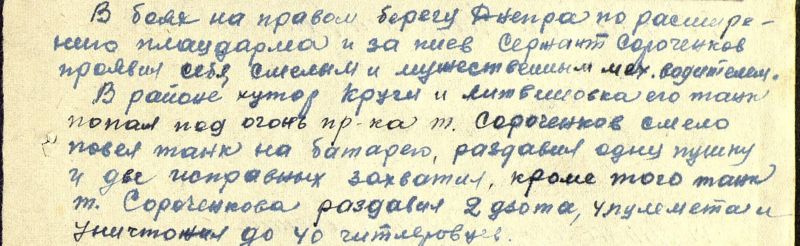 В боях на правом берегу Днепра по расшире-
нию плацдарма и за Киев Сержант Сороченков
проявил себя смелым и мужественным мех. водителем.
В районе хутор Круги и Литвиновка его танк
попал под огонь пр-ка т. Сороченков смело
повел танк на батарею, раздавил одну пушку
и две исправных захватил, кроме того танк
т. Сороченкова раздавил 2 дзота, 4 пулемета и
уничтожил до 40 гитлеровцев.